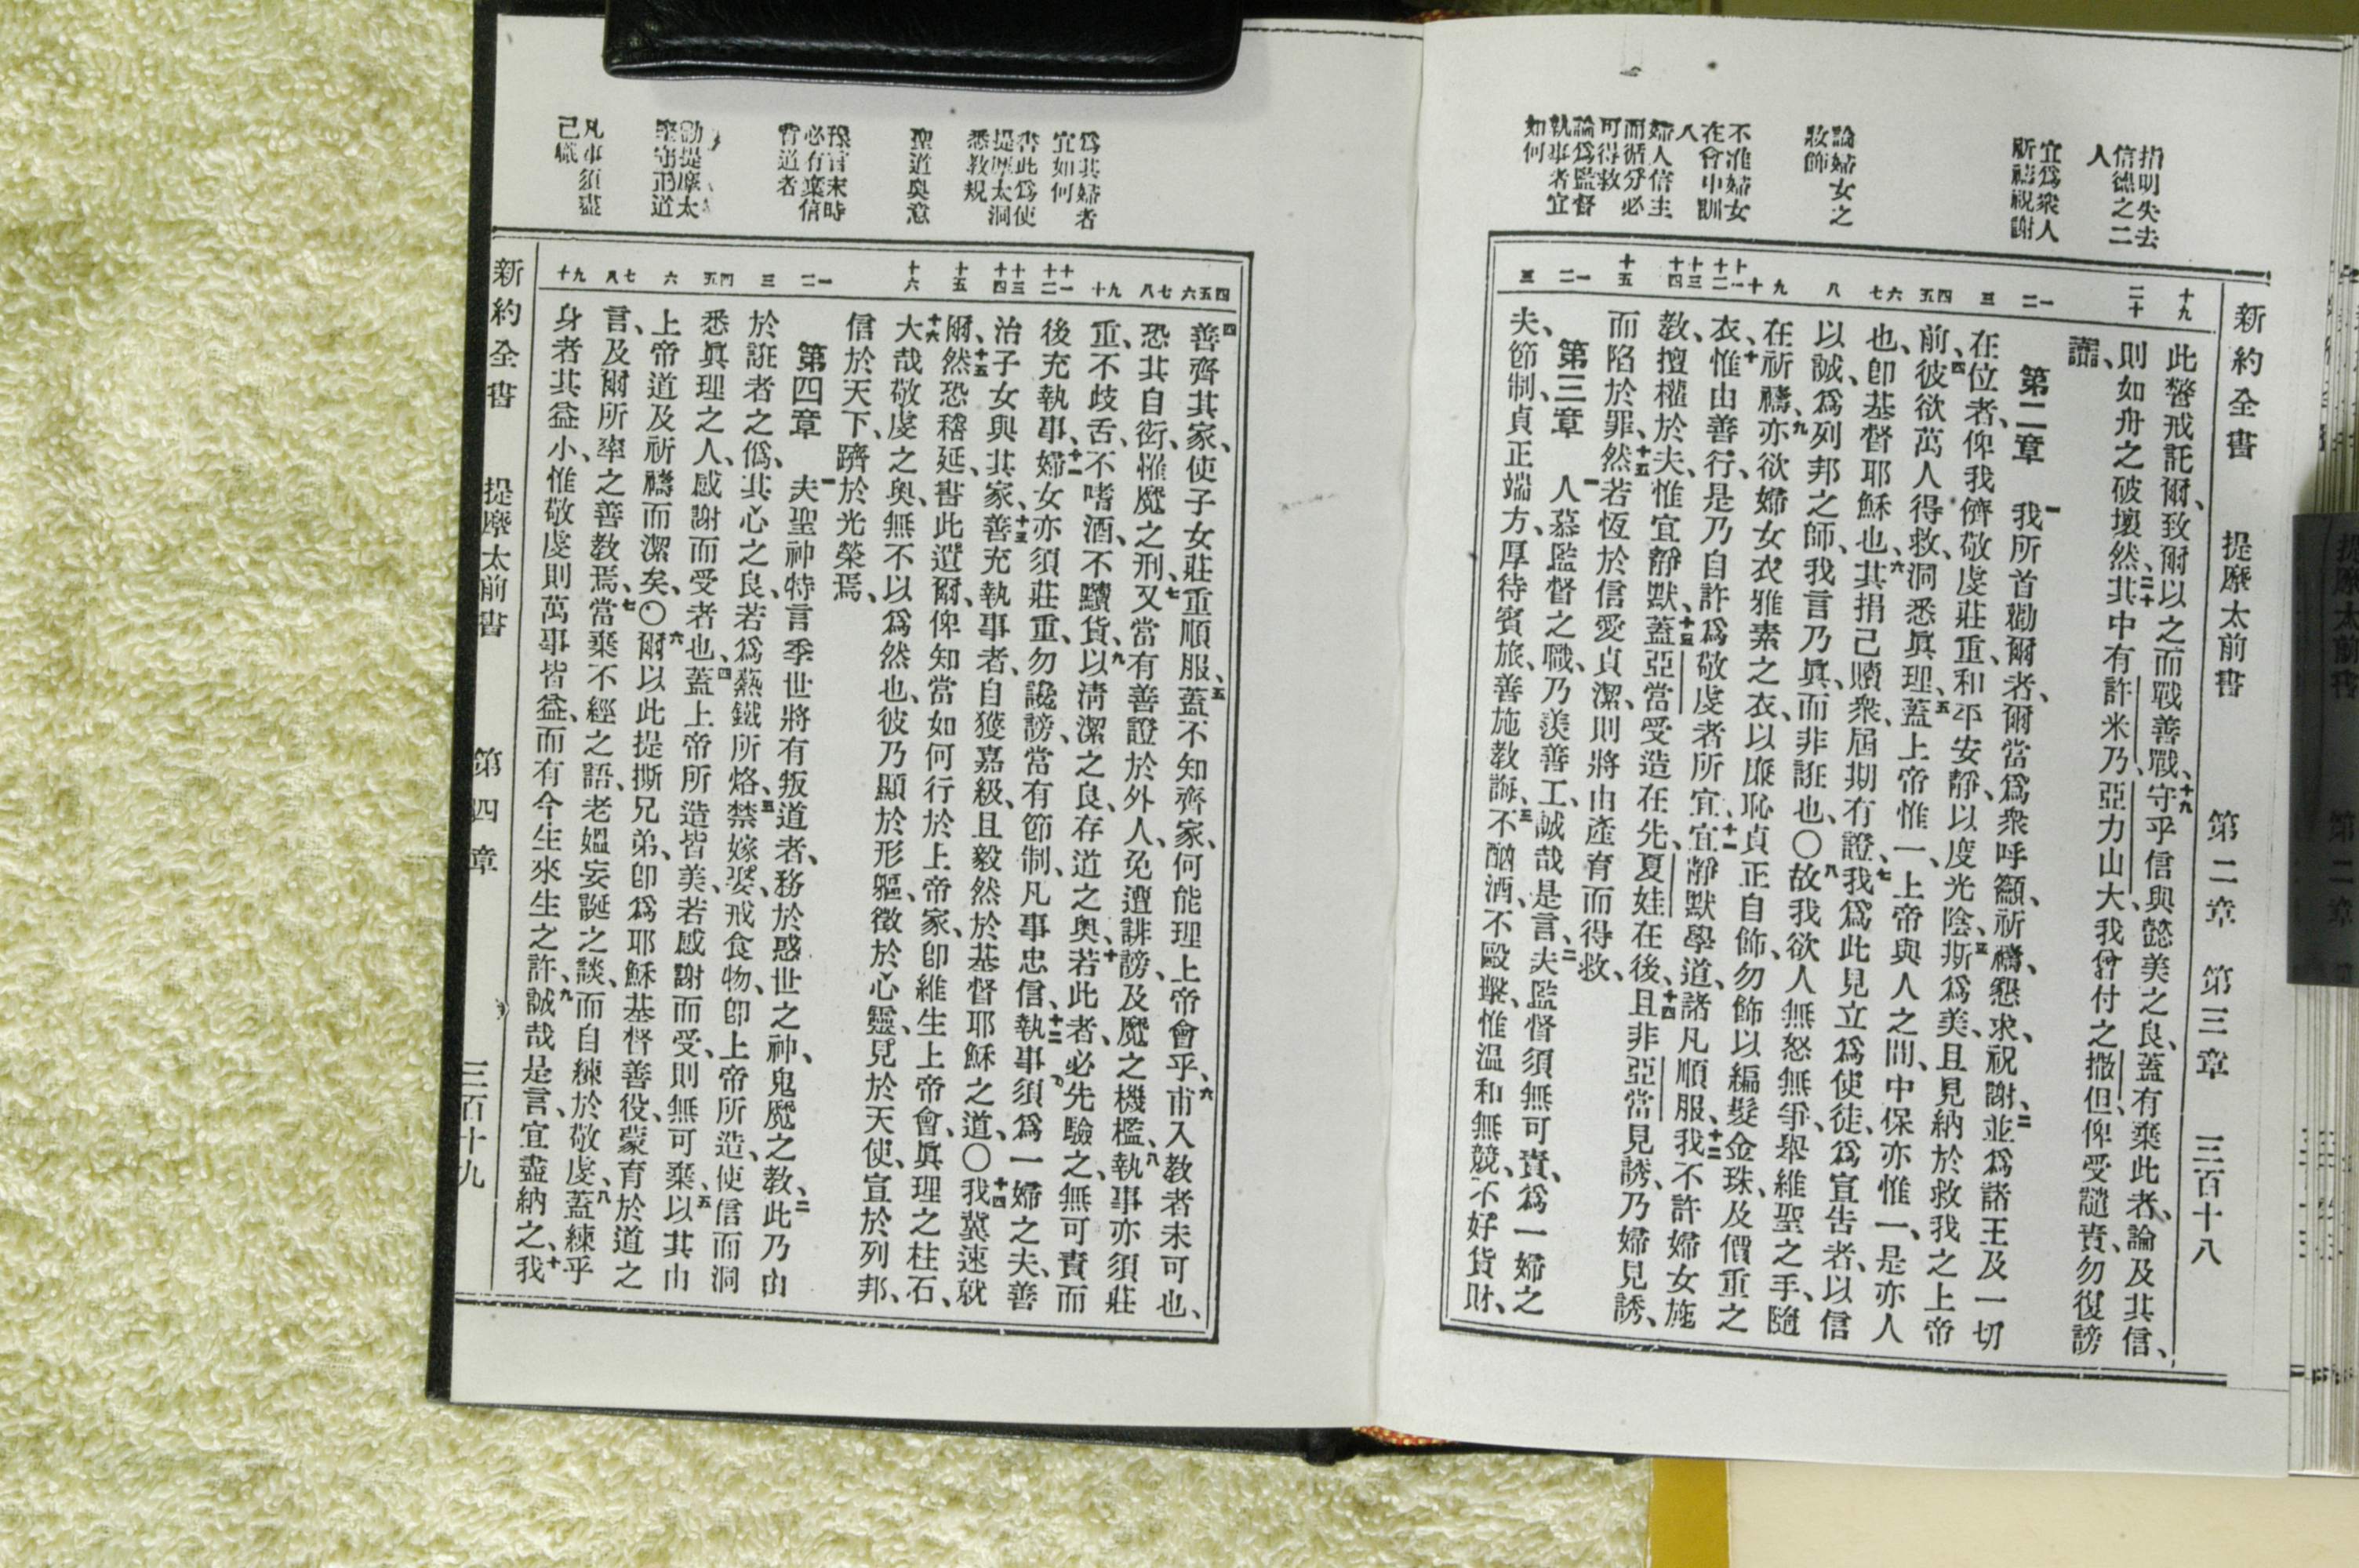 新約全書 提摩太前書 第二章 第三章 三百十八
指明失去
信德之二
人
宜爲衆人
所禱祝謝
論婦女之
妝飾
不准婦女
在會中訓
人
婦人信主
而循分必
可得救
論爲監督
執事者宜
如何
十九 二十 一二 三 四五 六七 八 九 十 十一十二 十三十四 十五 一二 三
此警戒託爾、致爾以之而戰善戰、十九守乎信與懿美之良、蓋有棄此者、論及其信、
則如舟之破壞然、二十其中有許米乃、亞力山大、我曾付之撒但、俾受譴責、勿復謗
讟、
第二章 一我所首勸爾者、爾當爲衆呼籲、祈禱、懇求、祝謝、二並爲諸王及一切
在位者、俾我儕敬虔莊重、和平安靜、以度光陰、三斯爲美、且見納於救我之上帝
前、四彼欲萬人得救、洞悉眞理、五蓋上帝惟一、上帝與人之間、中保亦惟一、是亦人
也、卽基督耶穌也、六其捐己贖衆、屆期有證、七我爲此見立爲使徒、爲宣告者、以信
以誠、爲列邦之師、我言乃眞、而非誑也、〇八故我欲人無怒無爭、舉維聖之手、隨
在祈禱、九亦欲婦女衣雅素之衣、以廉恥貞正自飾、勿飾以編髮金珠、及價重之
衣、十惟由善行、是乃自許爲敬虔者所宜、十一宜靜默學道、諸凡順服、十二我不許婦女施
教、擅權於夫、惟宜靜默、十三蓋亞當受造在先、夏娃在後、十四且非亞當見誘、乃婦見誘、
而陷於罪、十五然若恆於信愛貞潔、則將由產育而得救、
第三章 一人慕監督之職、乃羡善工、誠哉是言、二夫監督須無可責、爲一婦之
夫、節制、貞正端方、厚待賓旅、善施教誨、三不酗酒、不毆擊、惟温和無競、不好貨財、
爲其婦者
宜如何
書此爲使
提摩太洞
悉教規
聖道奧意
豫言末時
必有棄信
背道者
勸提摩太
堅守正道
凡事須盡
己職
四五六 七八 九十 十一十二 十三十四 十五 十六 一二 三 四五 六 七八 九十
四善齊其家、使子女莊重順服、五蓋不知齊家、何能理上帝會乎、六甫入教者未可也、
恐其自衒、罹魔之刑、七又當有善證於外人、免遭誹謗、及魔之機檻、八執事亦須莊
重、不歧舌、不嗜酒、不黷貨、九以淸潔之良、存道之奧、十若此者、必先驗之、無可責而
後充執事、十一婦女亦須莊重、勿讒謗、當有節制、凡事忠信、十二執事須爲一婦之夫、善
治子女與其家、十三善充執事者、自獲嘉級、且毅然於基督耶穌之道、〇十四我冀速就
爾、十五然恐稽延、書此遺爾、俾知當如何行於上帝家、卽維生上帝會、眞理之柱石、
十六大哉敬虔之奧、無不以爲然也、彼乃顯於形軀、徵於心靈、見於天使、宣於列邦、
信於天下、躋於光榮焉、
第四章 一夫聖神特言季世將有叛道者、務於惑世之神、鬼魔之教、二此乃由
於誑者之僞、其心之良、若爲爇鐵所烙、三禁嫁娶、戒食物、卽上帝所造、使信而洞
悉眞理之人、感謝而受者也、四蓋上帝所造皆美、若感謝而受、則無可棄、五以其由
上帝道及祈禱而潔矣、〇六爾以此提撕兄弟、卽爲耶穌基督善役、蒙育於道之
言、及爾所率之善教焉、七當棄不經之語、老媼妄誕之談、而自練於敬虔、八蓋練乎
身者其益小、惟敬虔則萬事皆益、而有今生來生之許、九誠哉是言、宜盡納之、十我
新約全書 提摩太前書 第四章 三百十九